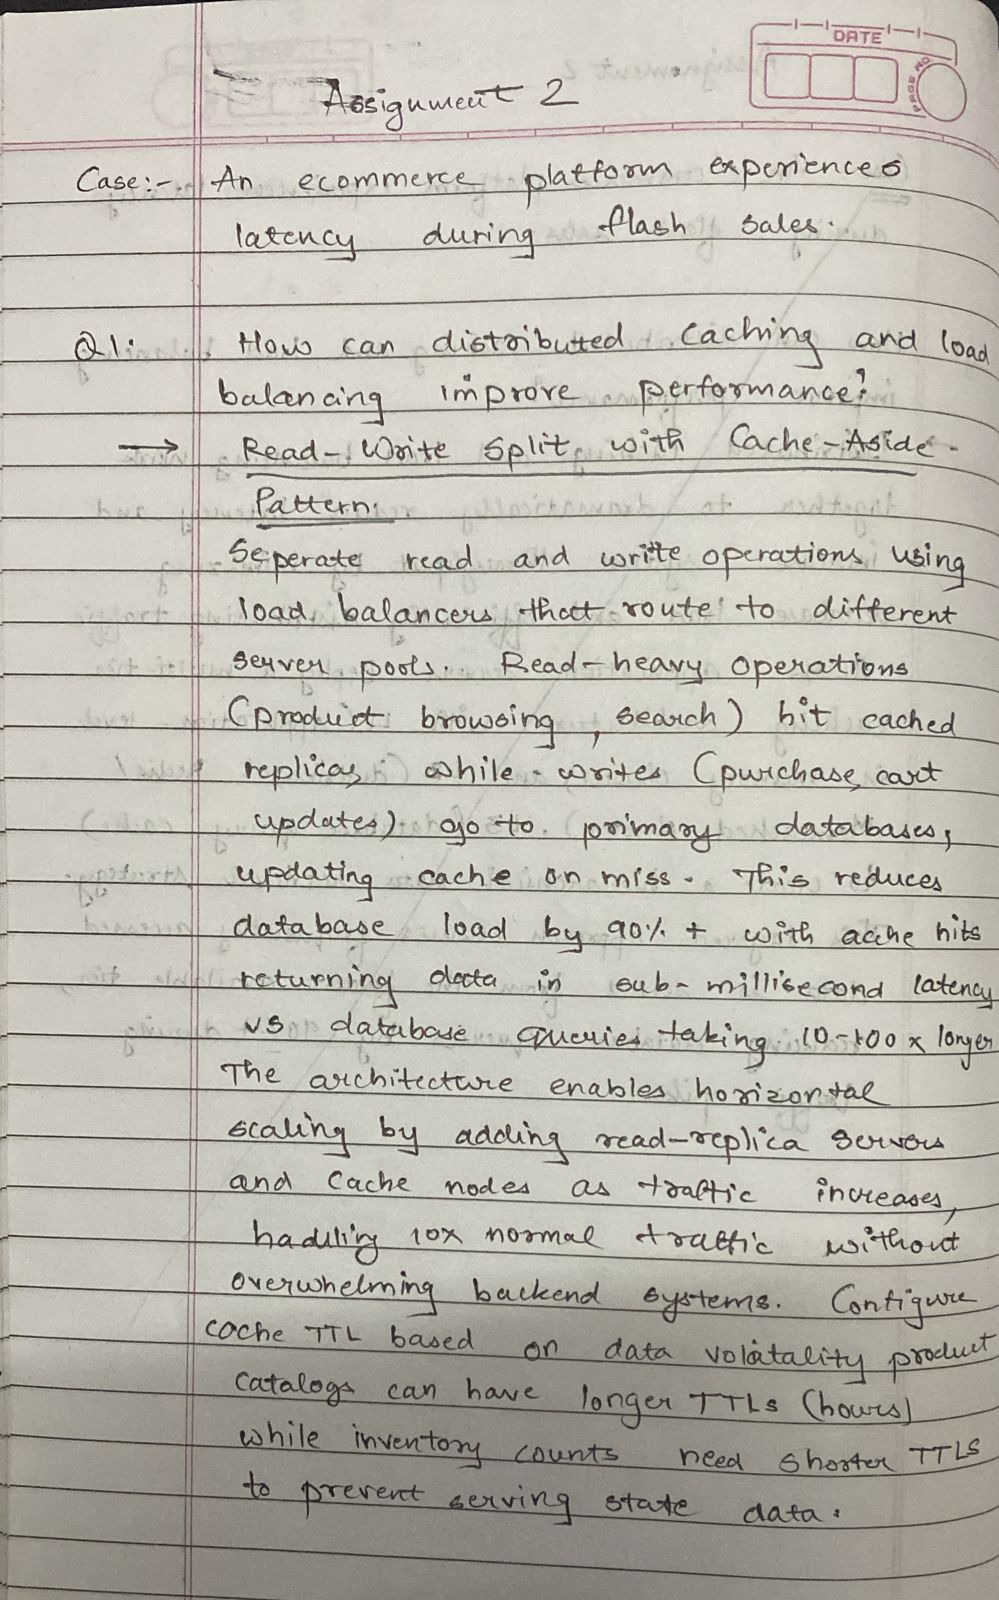 DATE
PAGE NO
Assignment 2
Case:- An ecommerce platform experiences
latency during flash sales.
Q1. How can distributed caching and load
balancing improve performance?
→ Read-Write Split with Cache-Aside
Pattern.
Seperate read and write operations using
load balancers that route to different
server pools. Read-heavy operations
(product browsing, search) hit cached
replicas, while writes (purchase, cart
updates) go to primary databases,
updating cache on miss. This reduces
database load by 90% + with cache hits
returning data in sub-millisecond latency
vs database queries taking 10-100x longer
The architecture enables horizontal
scaling by adding read-replica servers
and cache nodes as traffic increases,
hadling 10x normal traffic without
overwhelming backend systems. Configure
cache TTL based on data volatality product
catalogs can have longer TTLs (hours)
while inventory counts need shorter TTLS
to prevent serving state data.